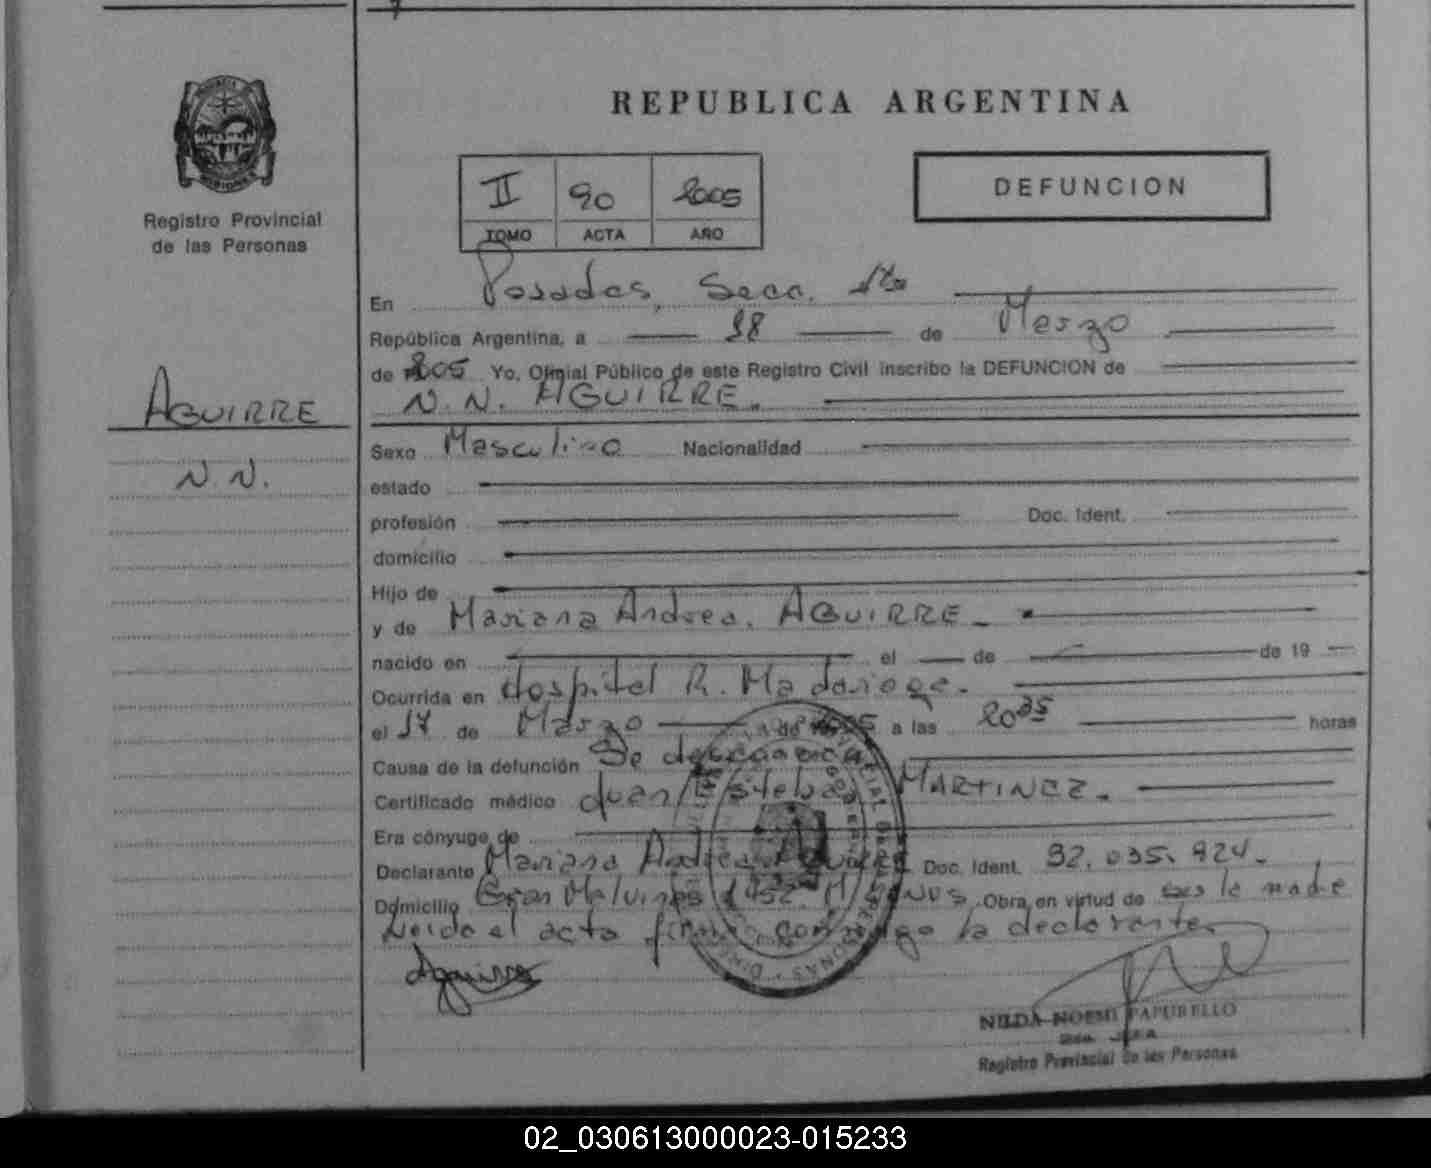 REPUBLICA ARGENTINA
PROVINCIA DE MISIONES
Registro Provincial
de las Personas
II 90 2005
TOMO ACTA AÑO
DEFUNCION
En Posadas, Secc. 1ra
República Argentina, a 18 de Marzo
de 2005 Yo, Oficial Público de este Registro Civil inscribo la DEFUNCION de
N.N. AGUIRRE.
AGUIRRE
N.N.
Sexo Masculino Nacionalidad
estado
profesión Doc. Ident.
domicilio
Hijo de
y de Mariana Andrea AGUIRRE
nacido en el de de 19
Ocurrida en Hospital R. Madariaga.
el 17 de Marzo de 2005 a las 20 35 horas
Causa de la defunción Se desconoce
Certificado médico Juan Esteban MARTINEZ.
Era cónyuge de
Declarante Mariana Andrea Aguirre Doc. Ident. 32.035.924.
Domicilio Gran Malvinas 1452 Obra en virtud de ser la madre
Leido el acta firma conmigo la declarante.
Aguirre
NILDA NOEMI PAPURELLO
JEFA
Registro Provincial de las Personas
02_030613000023-015233